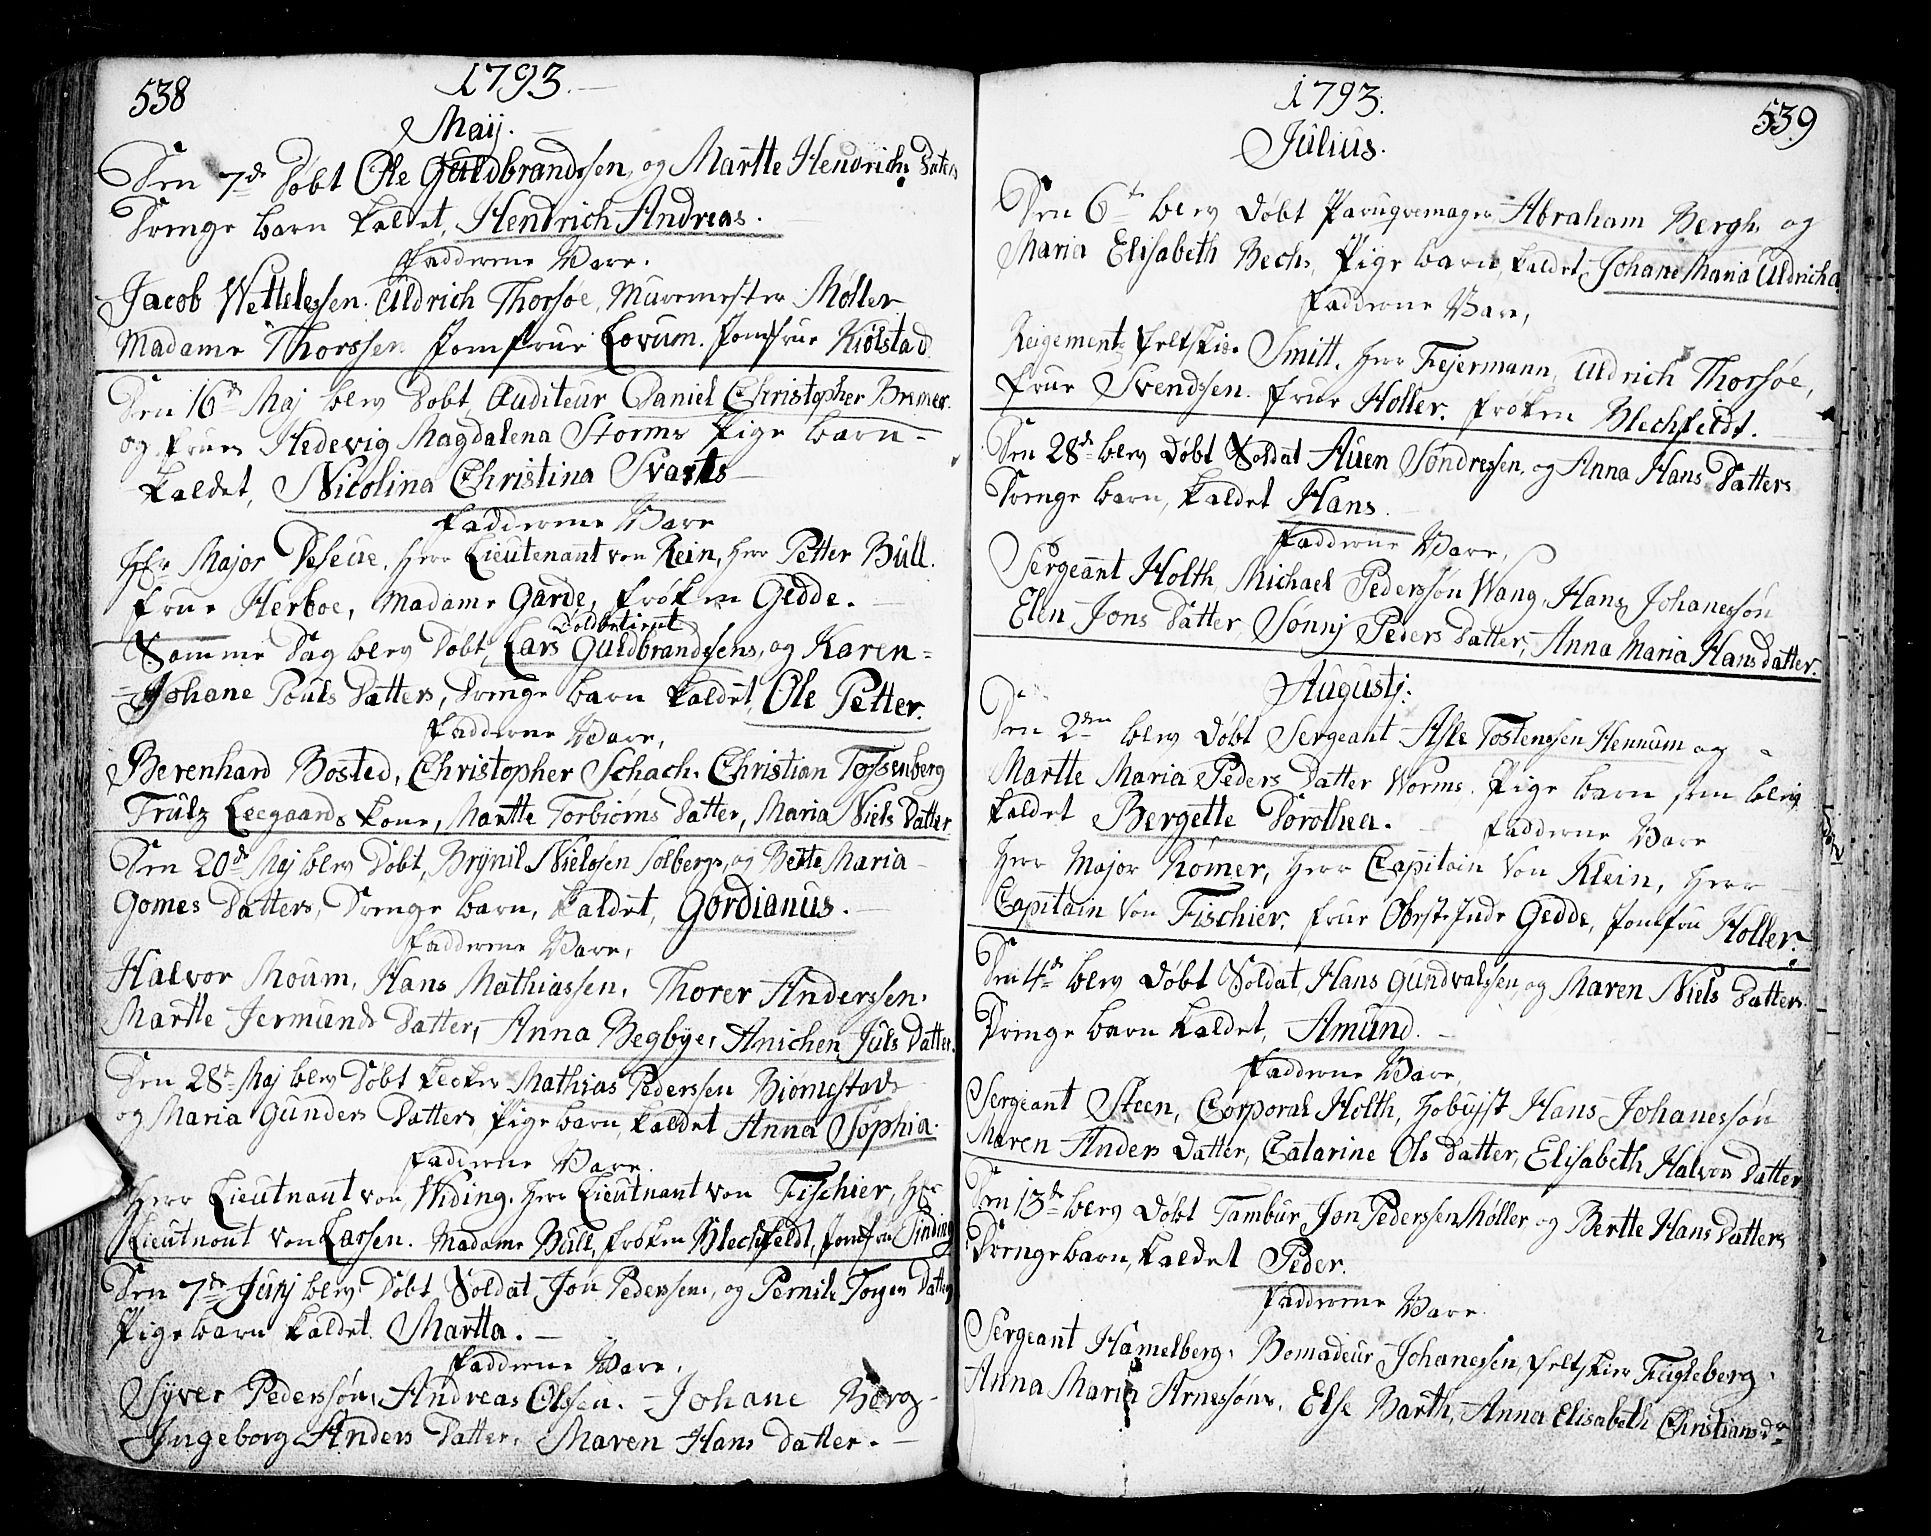 538
1793.
Maij.
Den 7de Døbt Ole Guldbrandssen, og Martte Hendrichs Daters
Drenge barn kaldet, Hendrich Andreas.
Fadderne Vare.
Jacob Wettelessen. Uldrich Thorsøe, Muremester Møller
Madame Thorssen Jomfrue Lovum. Jomfrue Kiølstad
Den 16de Maj blev Døbt, Auditeur Daniel Christopher Bremer.
og Frues Hedevig Magdalena Storms Pige barn-
kaldet, Nicolina Christina Svarts
Fadderne Vare
Hr Major Deseue. Herr Lieutenant von Rein, Herr Petter Bull.
Frue Herboe, Madame Garde, Frøken Gedde.
Toldbetient
Samme Dag blev Døbt, Lars Guldbrandssens, og Karen=
Johane Pouls Datters, Drenge barn kaldet, Ole Petter.
Fadderne Vare,
Berenhard Bosted, Christopher Schach. Christian Tossenberg
Trulz Leegaards kone, Martte Torbiørns Datter, Maria Niels Datter
Den 20de Maj blev Døbt, Brÿnil Nielssen Solberg, og Bertte Maria
Gomes Datters, Drenge barn, kaldet, Gordianus.
Fadderne Vare,
Halvor Moum, Hans Mathiassen, Thorer Anderssen.
Martte Jermunds Datter, Anna Begbÿe, Anichen Juls Datter.
Den 28de Maj blev Døbt Mathias Pederssen Biørnestad
og Maria Gunders Datters, Pige barn, kaldet Anna Sophia.
Fadderne Vare.
Herr Lieutnant von Widing. Herr Lieutnant von Fischier, Hr
Lieutnont von Larssen. Madame Bull, Frøken Blechfeldt, Jomfru Sinding
Den 7de Junj blev Døbt Soldat Jon Pederssens, og Pernile Torgers Datters
Pige barn kaldet. Martta.
Fadderne Vare,
Syver Pederssøn, Andreas Olssen. Johane Berg
Ingeborg Anders Datter, Maren Hans Datter.
1793.
539
Julius.
Den 6te blev Døbt Paruqvemager Abraham Bergh. og
Maria Elisabeth Bechs, Pige barn, kaldet, Johane Maria Uldricha
Fadderne Vare,
Reigements Feltskier Smitt, Herr Fejermann, Uldrich Thorsøe,
Frue Svendssen. Frue Holler. Frøken Blechfeldt.
Den 28de blev Døbt Soldat Auen Søndressen, og Anna Hans Datters
Drenge barn, kaldet Hans.
Fadderne Vare,
Sergeant Holth, Michael Pederssøn Wang, Hans Johanessøn
Elen Jons Datter, Sønnj Peders Datter, Anna Maria Hans datter.
Augustj:
Den 2den blev Døbt Sergeant Asle Tostenssen Hennum og
Martte Maria Peders Datter Worms. Pige barn som blev
kaldet Bergette Dorothea.
Fadderne Vare
Herr Major Rømer, Herr Capitain von Klein, Herr
Capitain von Fischier. Frue Obrstinde Gedde, Jomfru Holler.
Den 4de blev Døbt Soldat, Hans Gundvalssen, og Maren Niels Datters
Drenge barn kaldet, Amund.
Fadderne Vare,
Sergeant Steen, Corporal Holth, Hobujst Hans Johanessøn
Maren Anders Datter, Catarine Ols datter, Elisabeth Halvors Datter
Den 13de blev Døbt Tambur Jon Pederssen Møller og Bertte Hans Datters
Drenge barn, kaldet Peder.
Fadderne Vare.
Sergeant Hamelberg. Bomadeur Johanessen, Feltskier Fugleberg.
Anna Maria Arnessøns. Else Barth, Anna Elisabeth Christiansdr